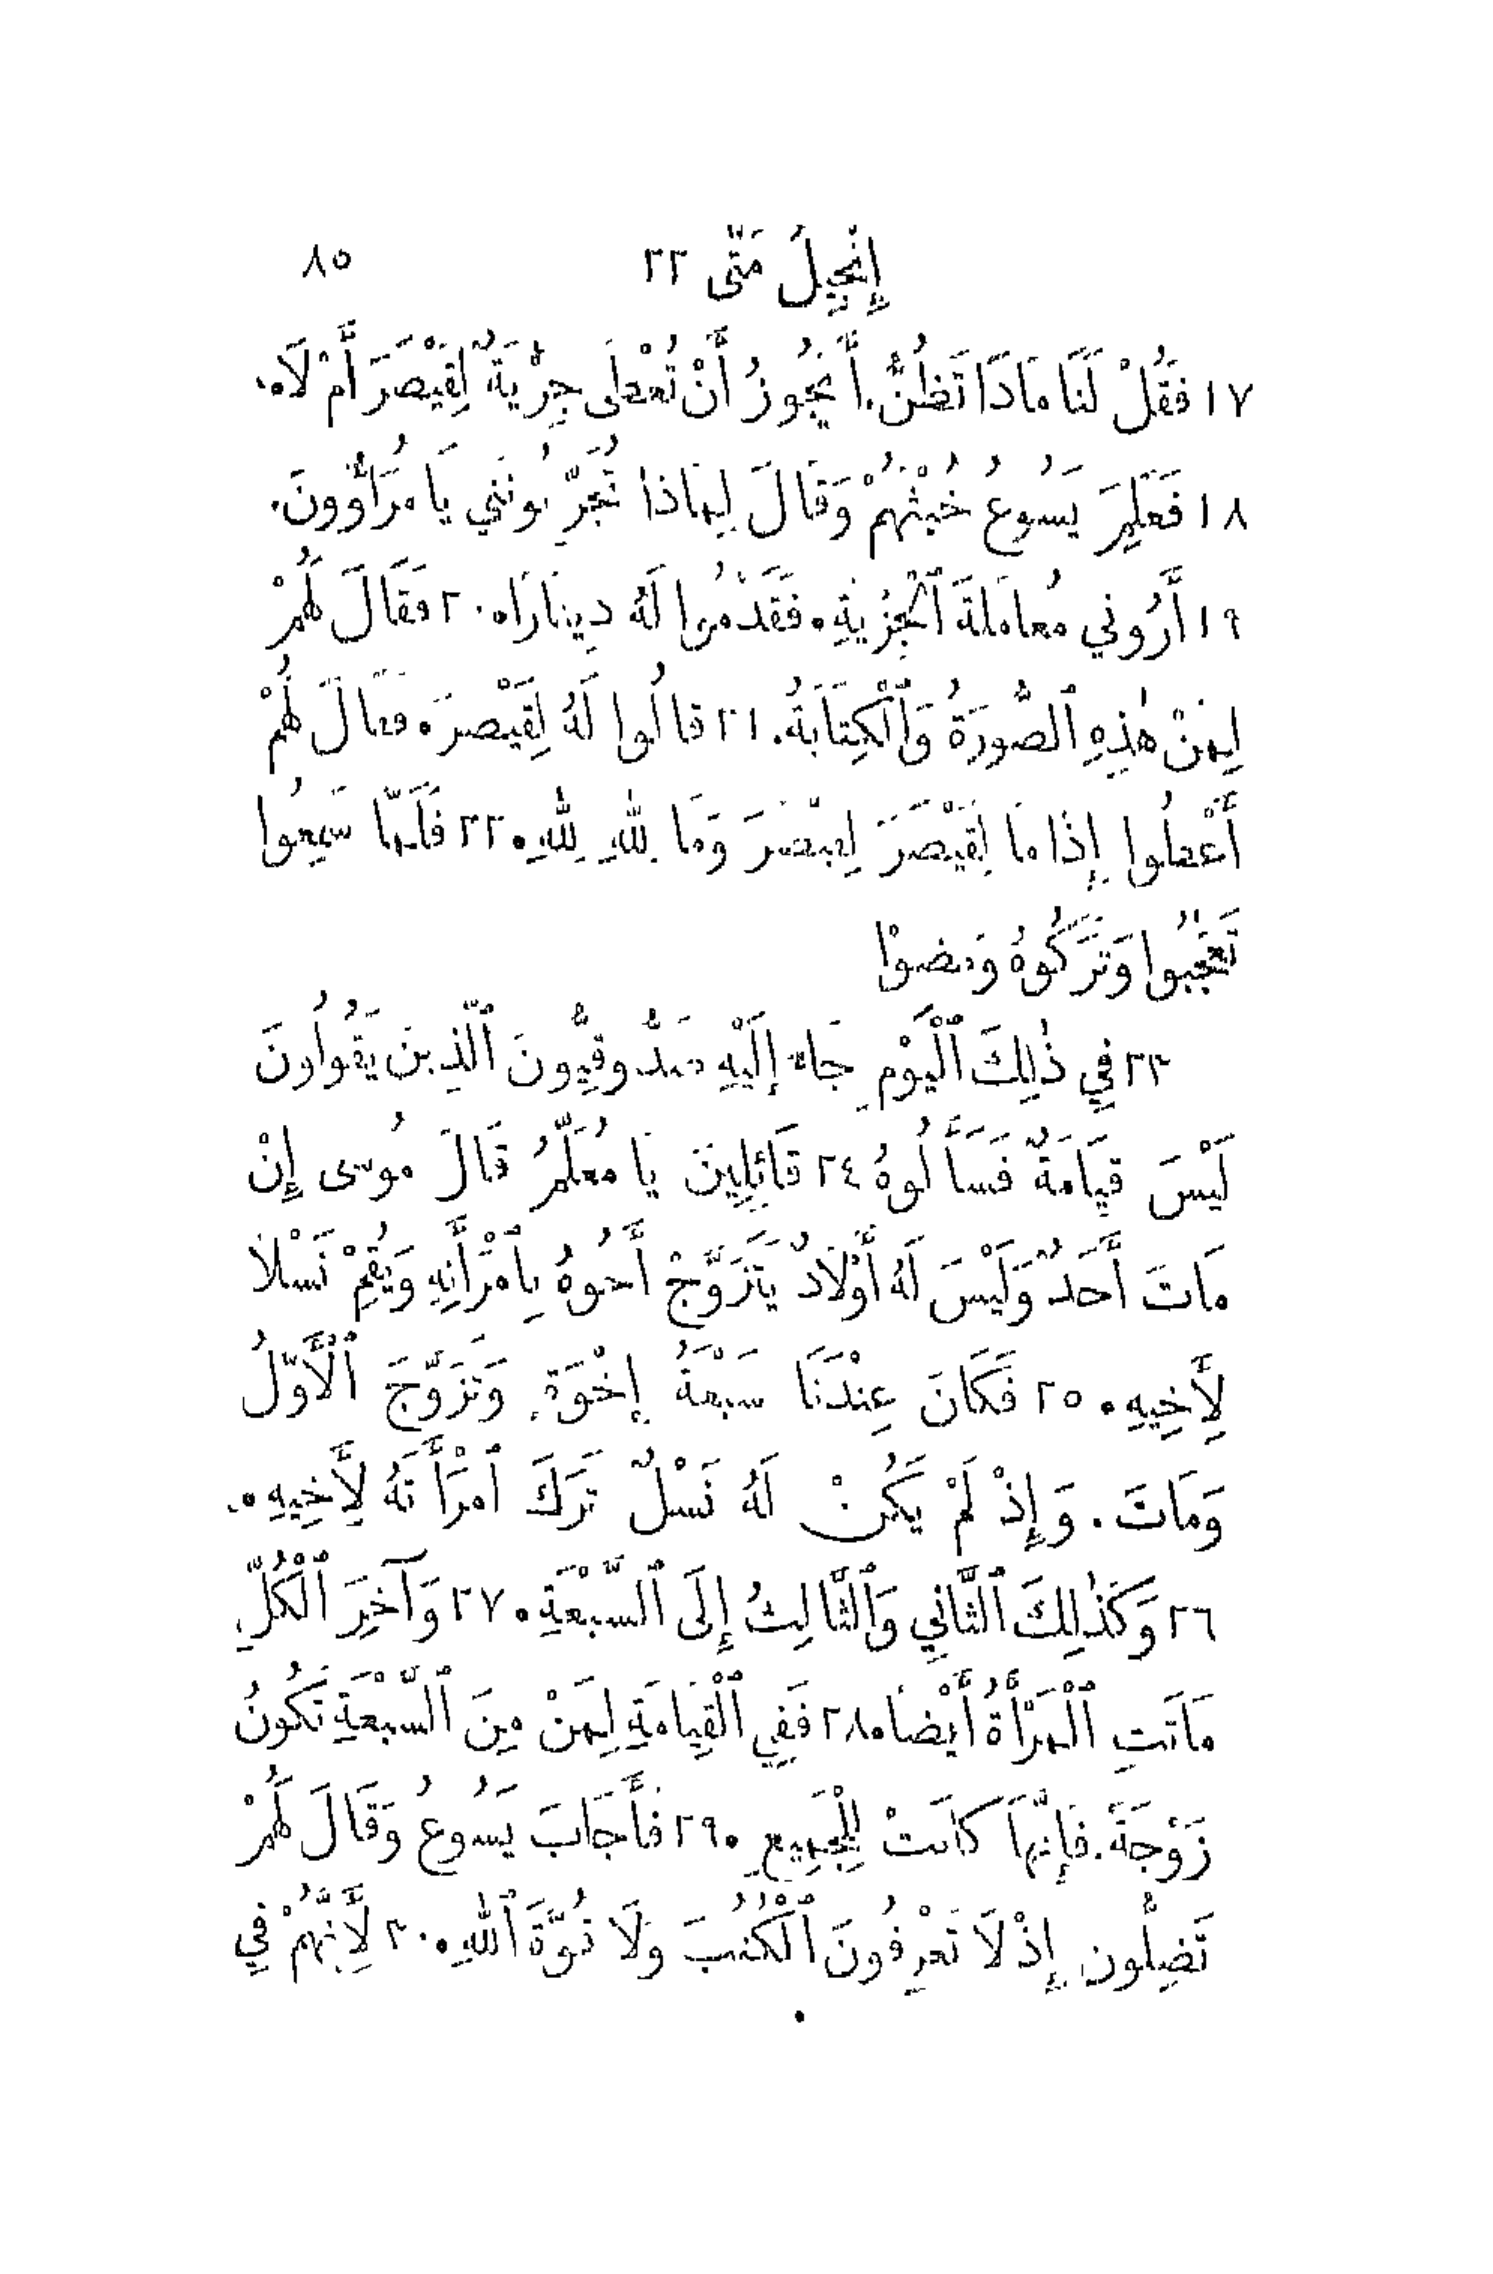 إِنْجِيلُ مَتَّى ٢٢ ٨٥
١٧ فَقُلْ لَنَا مَاذَا تَظُنُّ. أَيَجُوزُ أَنْ تُعْطَى جِزْيَةٌ لِقَيْصَرَ أَمْ لَا.
١٨ فَعَلِمَ يَسُوعُ خُبْثَهُمْ وَقَالَ لِمَاذَا تُجَرِّبُونَنِي يَا مُرَاؤُونَ.
١٩ أَرُونِي مُعَامَلَةَ ٱلْجِزْيَةِ. فَقَدَّمُوا لَهُ دِينَارًا. ٢٠ فَقَالَ لَهُمْ
لِمَنْ هٰذِهِ ٱلصُّورَةُ وَٱلْكِتَابَةُ. ٢١ قَالُوا لَهُ لِقَيْصَرَ. فَقَالَ لَهُمْ
أَعْطُوا إِذًا مَا لِقَيْصَرَ لِقَيْصَرَ وَمَا لِلهِ لِلهِ. ٢٢ فَلَمَّا سَمِعُوا
تَعَجَّبُوا وَتَرَكُوهُ وَمَضَوْا
٢٣ فِي ذٰلِكَ ٱلْيَوْمِ جَاءَ إِلَيْهِ صَدُّوقِيُّونَ ٱلَّذِينَ يَقُولُونَ
لَيْسَ قِيَامَةٌ فَسَأَلُوهُ ٢٤ قَائِلِينَ يَا مُعَلِّمُ قَالَ مُوسَى إِنْ
مَاتَ أَحَدٌ وَلَيْسَ لَهُ أَوْلَادٌ يَتَزَوَّجْ أَخُوهُ بِٱمْرَأَتِهِ وَيُقِمْ نَسْلًا
لِأَخِيهِ. ٢٥ فَكَانَ عِنْدَنَا سَبْعَةُ إِخْوَةٍ وَتَزَوَّجَ ٱلْأَوَّلُ
وَمَاتَ. وَإِذْ لَمْ يَكُنْ لَهُ نَسْلٌ تَرَكَ ٱمْرَأَتَهُ لِأَخِيهِ.
٢٦ وَكَذٰلِكَ ٱلثَّانِي وَٱلثَّالِثُ إِلَى ٱلسَّبْعَةِ. ٢٧ وَآخِرَ ٱلْكُلِّ
مَاتَتِ ٱلْمَرْأَةُ أَيْضًا. ٢٨ فَفِي ٱلْقِيَامَةِ لِمَنْ مِنَ ٱلسَّبْعَةِ تَكُونُ
زَوْجَةً. فَإِنَّهَا كَانَتْ لِلْجَمِيعِ. ٢٩ فَأَجَابَ يَسُوعُ وَقَالَ لَهُمْ
تَضِلُّونَ إِذْ لَا تَعْرِفُونَ ٱلْكُتُبَ وَلَا قُوَّةَ ٱللهِ. ٣٠ لِأَنَّهُمْ فِي